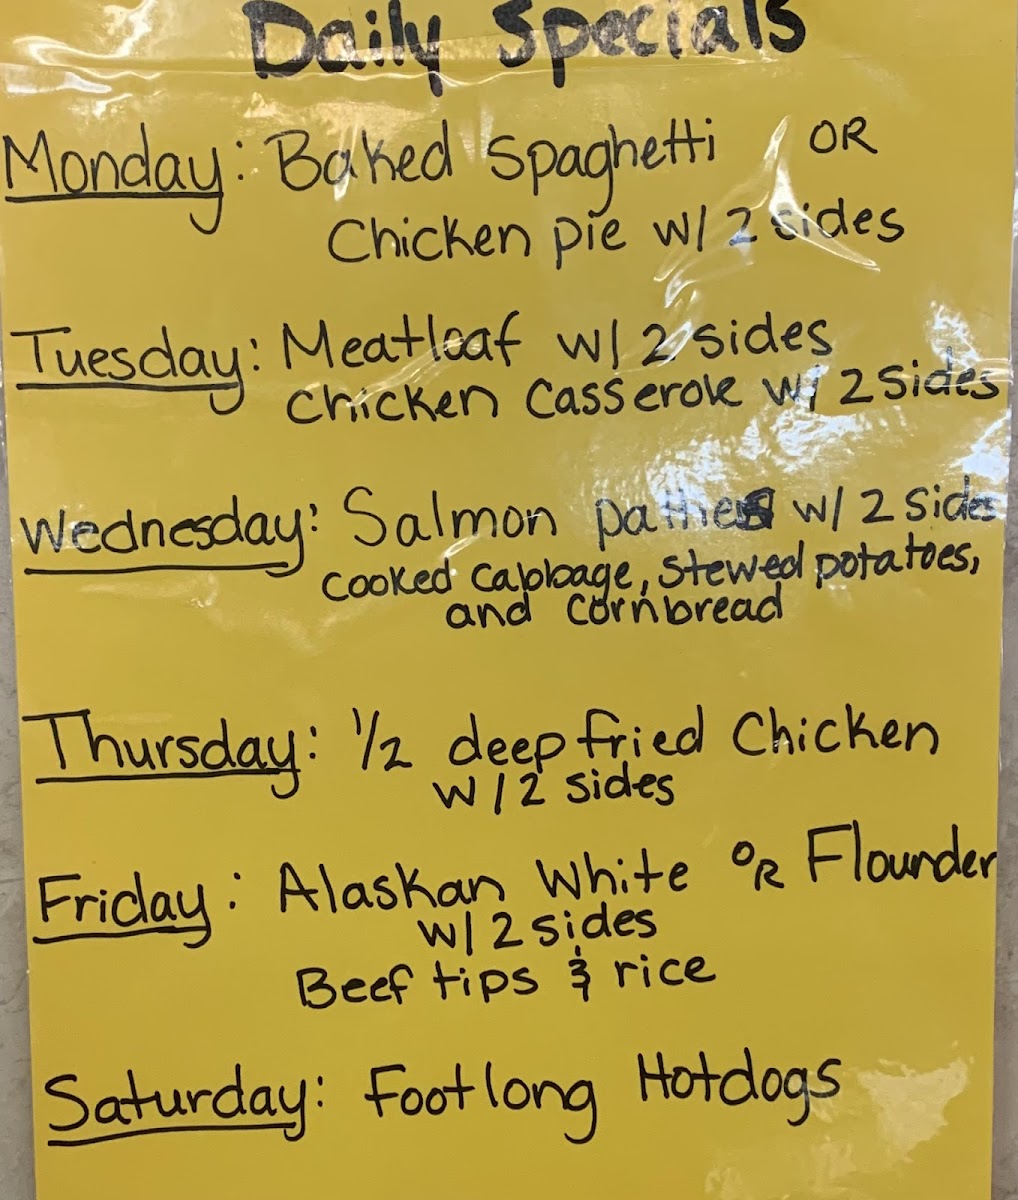 Daily Specials
Monday: Baked Spaghetti OR
Chicken pie w/ 2 sides
Tuesday: Meatloaf w/ 2 sides
Chicken Casserole w/ 2 sides
Wednesday: Salmon patties w/ 2 sides
Cooked Cabbage, Stewed potatoes,
and Cornbread
Thursday: 1/2 deep fried Chicken
w/ 2 sides
Friday: Alaskan White OR Flounder
w/ 2 sides
Beef tips & rice
Saturday: Footlong Hotdogs